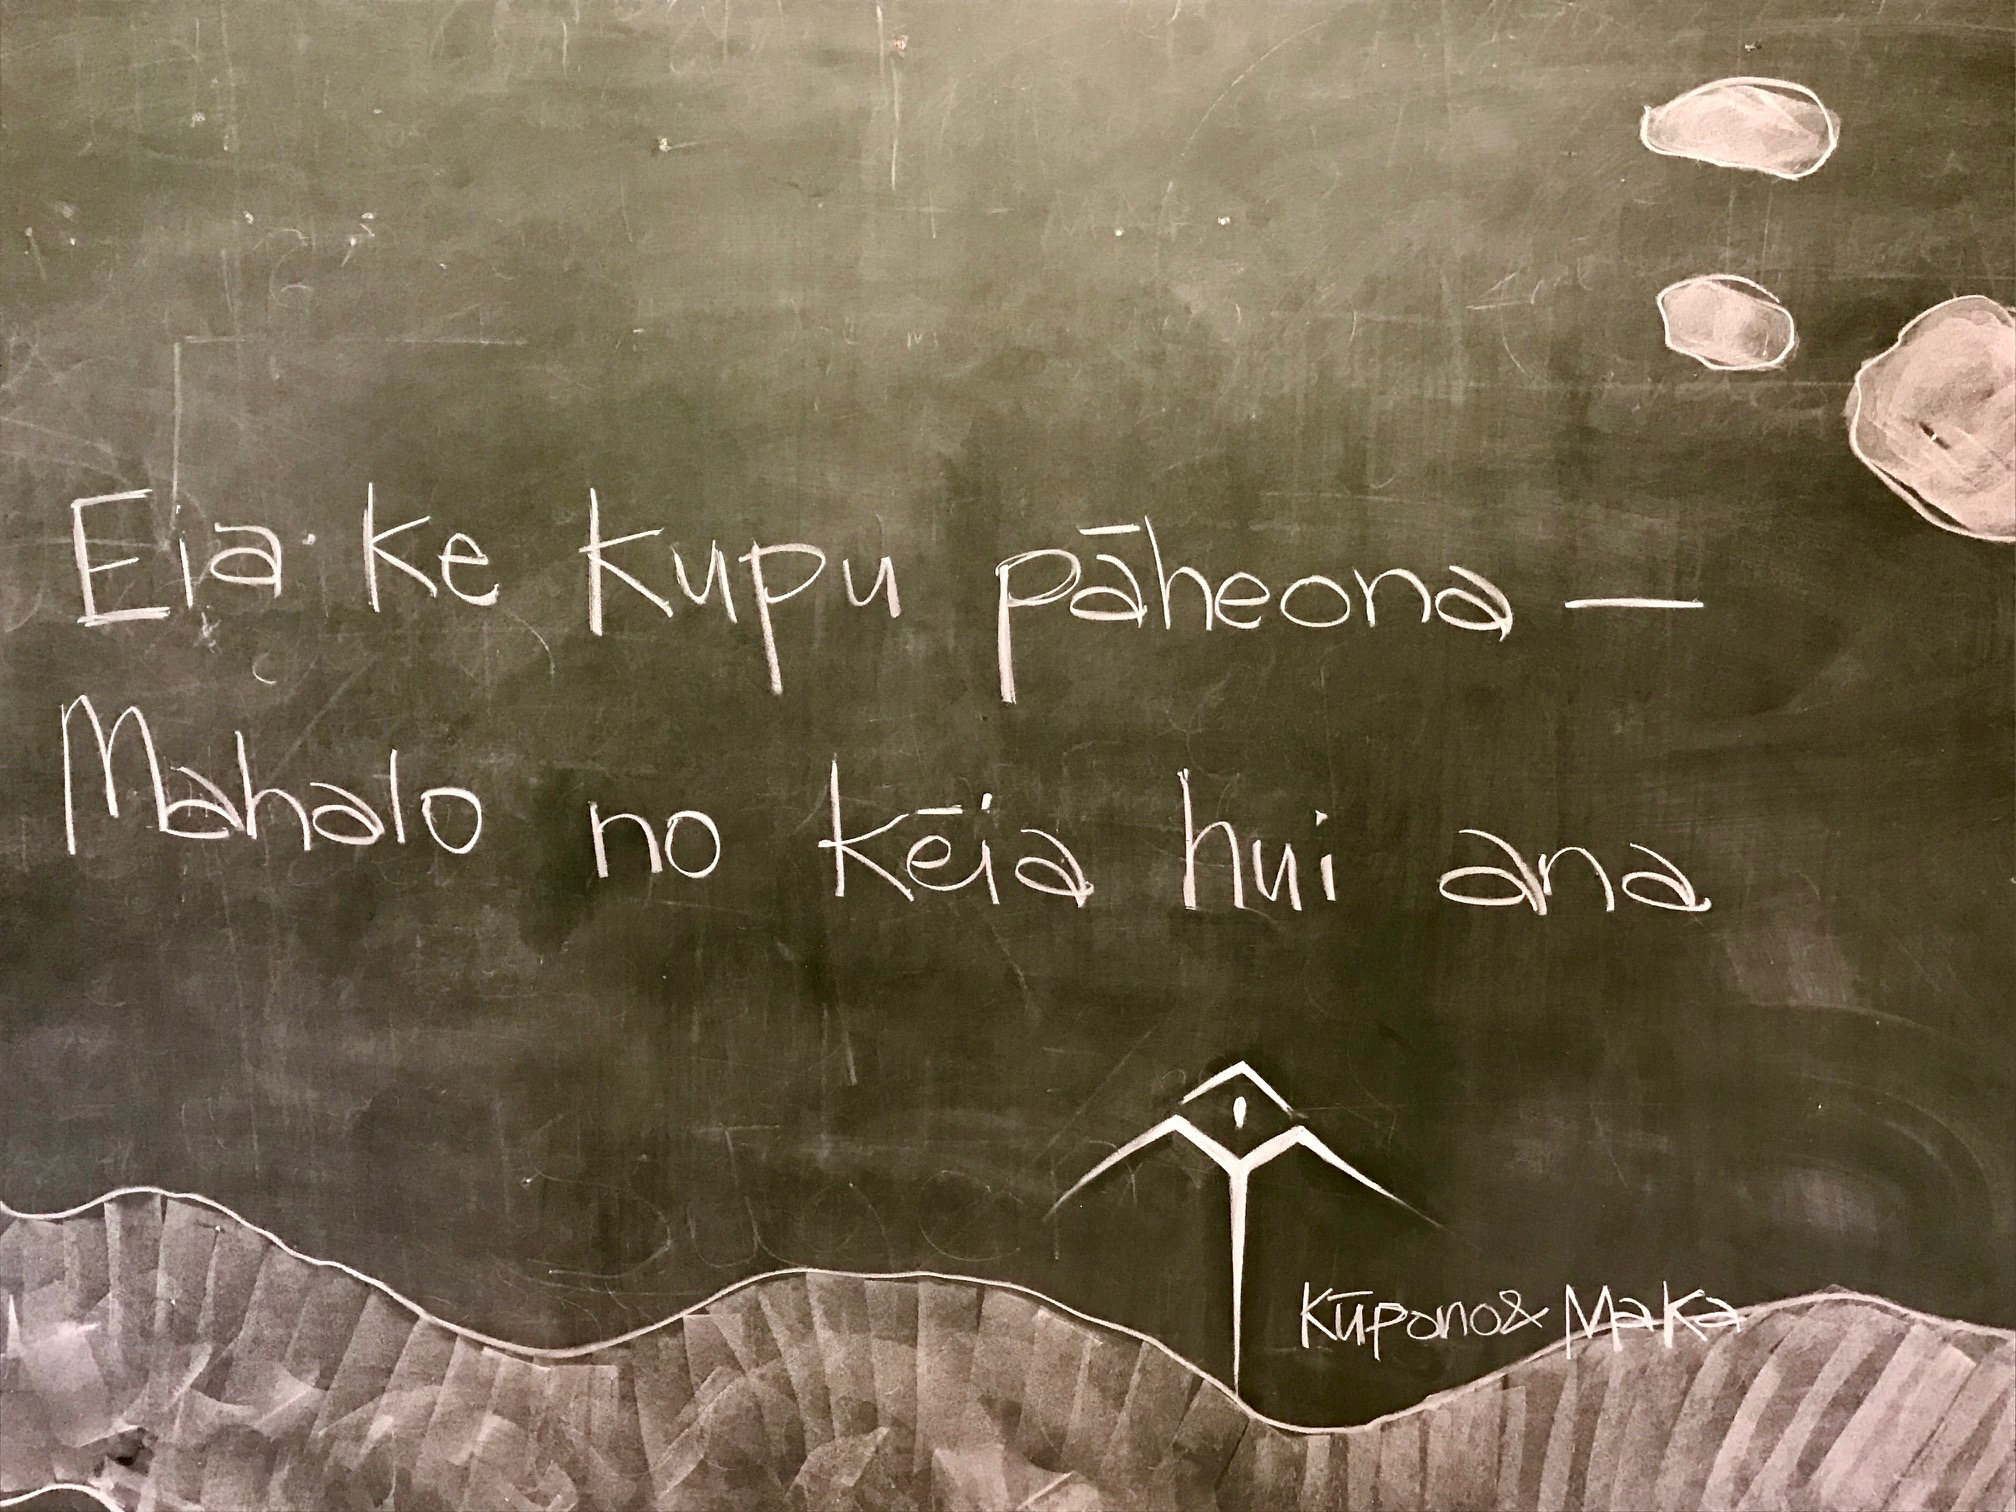 Eia ke kupu pāheona —
Mahalo no kēia hui ana
Kūpono & Maka